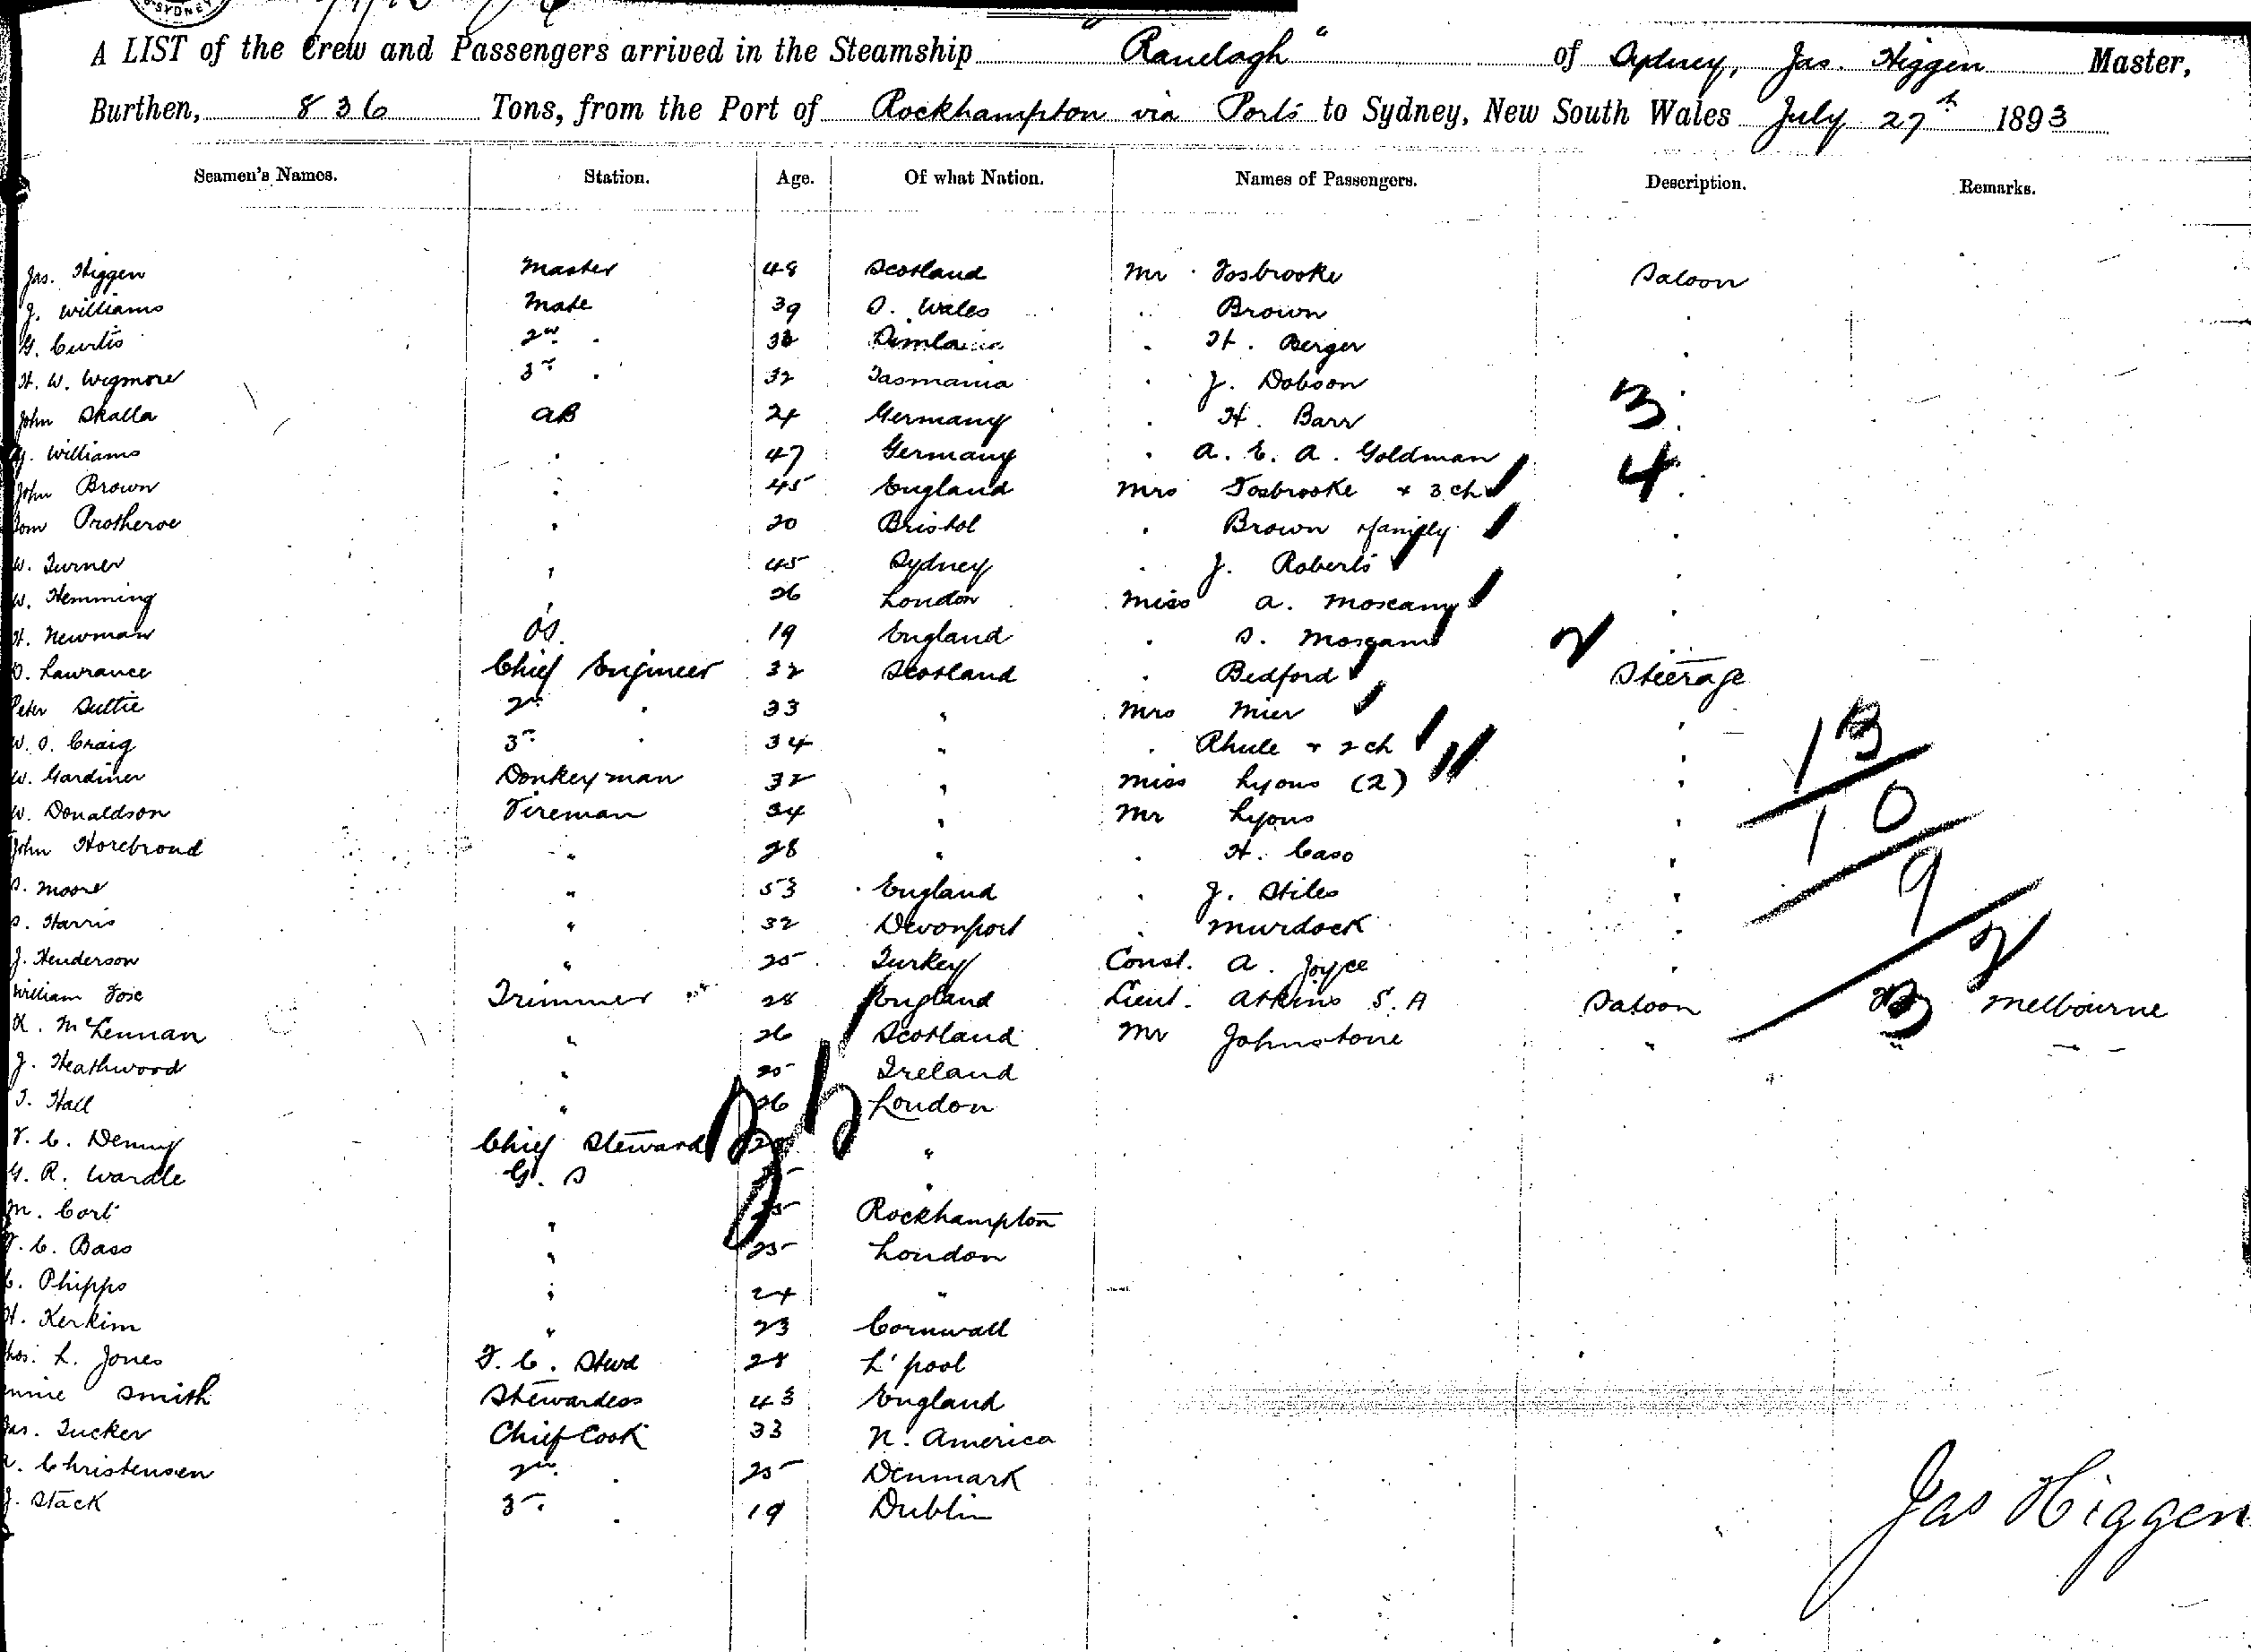 SYDNEY
A LIST of the Crew and Passengers arrived in the Steamship "Ranelagh" of Sydney, Jas. Higgen Master,
Burthen, 836 Tons, from the Port of Rockhampton via Ports to Sydney, New South Wales July 27th 1893
Seamen's Names. Station. Age. Of what Nation. Names of Passengers. Description. Remarks.
Jas. Higgen Master 48 Scotland Mr Fosbrooke Saloon
J. Williams Mate 39 S. Wales " Brown "
G. Curtis 2nd " 33 " H. Berger "
H. W. Wigmore 3rd " 32 Tasmania " J. Dobson "
John Skalla AB 24 Germany " H. Barr 3 "
J. Williams " 47 Germany " A. E. A. Goldman 4 "
John Brown " 45 England Mrs Fosbrooke + 3 ch "
Tom Protheroe " 20 Bristol " Brown & family "
W. Turner " 45 Sydney " J. Roberts "
W. Hemming " 26 London Miss A. "
H. Newman OS. 19 England " S. 2 "
D. Lawrance Chief Engineer 32 Scotland " Bedford Steerage
Peter Suttie 2nd " 33 " Mrs Mier "
W. S. Craig 3rd " 34 " " Rhule + 2 ch " 13
W. Gardiner Donkeyman 32 " Miss Lyons (2) "
W. Donaldson Fireman 34 " Mr Lyons " 10
John Horebroud " 28 " " H. Caso "
S. Moore " 53 England " J. Stiles " 9
S. Harris " 32 Devonport " Murdock "
J. Henderson " 25 Turkey Const. A. Joyce " 2
William Fose Trimmer 28 England Lieut. Atkins S. A Saloon Melbourne
K. McLennan " 26 Scotland Mr Johnstone " " "
J. Heathwood " 25 Ireland
T. Hall " 26 London
F. C. Denny Chief Steward "
G. R. Wardle G. S "
M. Cort " Rockhampton
F. C. Bass " 25 London
C. Phipps " 24 "
H. Kerkim " 23 Cornwall
Thos. L. Jones F. C. Stwd 28 L'pool
Smith Stewardess 43 England
Jas. Tucker Chief Cook 33 N. America
Christensen 2nd " 25 Denmark
J. Stack 3rd " 19 Dublin
Jas Higgen